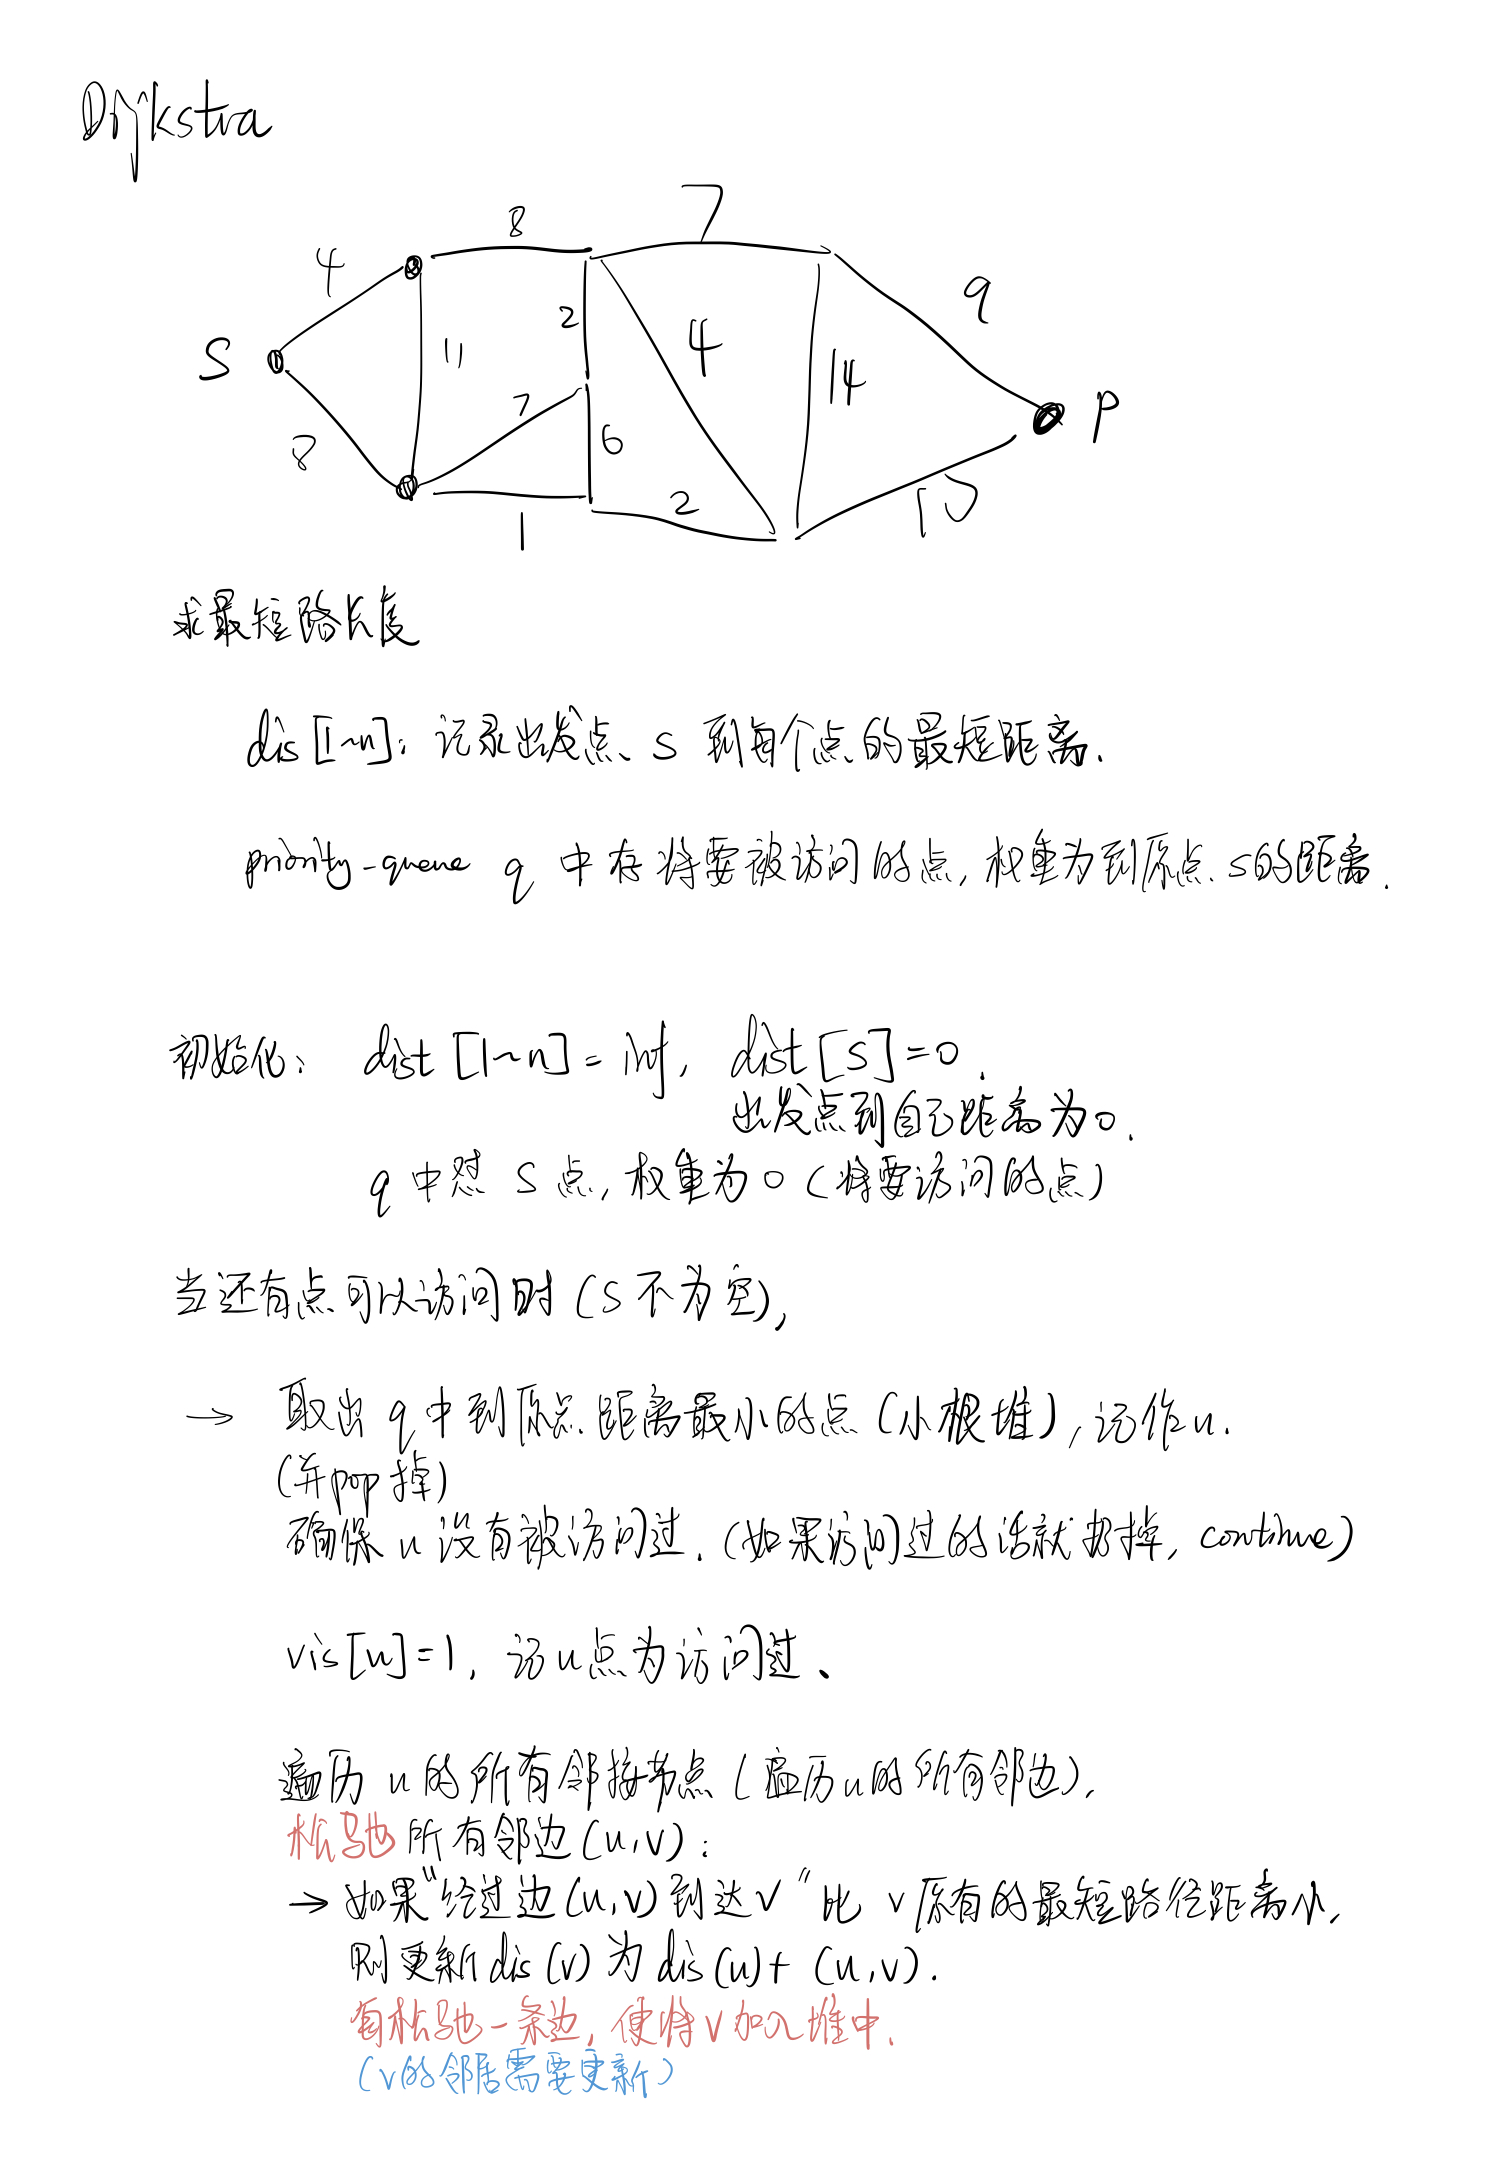 Dijkstra
8 7
4 9
2 4
S 11 14
7 P
8 6
2 10
1
求最短路长度
dis [1~n]: 记录出发点 s 到每个点的最短距离.
priority-queue q 中存将要被访问的点, 权重为到原点 s的距离.
初始化: dist [1~n] = inf, dist [S] = 0.
出发点到自己距离为0.
q 中怼 S 点, 权重为 0 (将要访问的点)
当还有点可以访问时 (S 不为空),
→ 取出 q 中到原点距离最小的点 (小根堆), 记作 u.
(并pop掉)
确保 u 没有被访问过. (如果访问过的话就扔掉, continue)
vis[u]=1, 记u点为访问过.
遍历 u 的所有邻接节点 (遍历u的所有邻边).
松弛所有邻边 (u,v):
→ 如果“经过边(u,v)到达v”比 v原有的最短路径距离小,
则更新 dis(v) 为 dis(u)+ (u,v).
每松弛一条边, 便将v加入堆中.
(v的邻居需要更新)